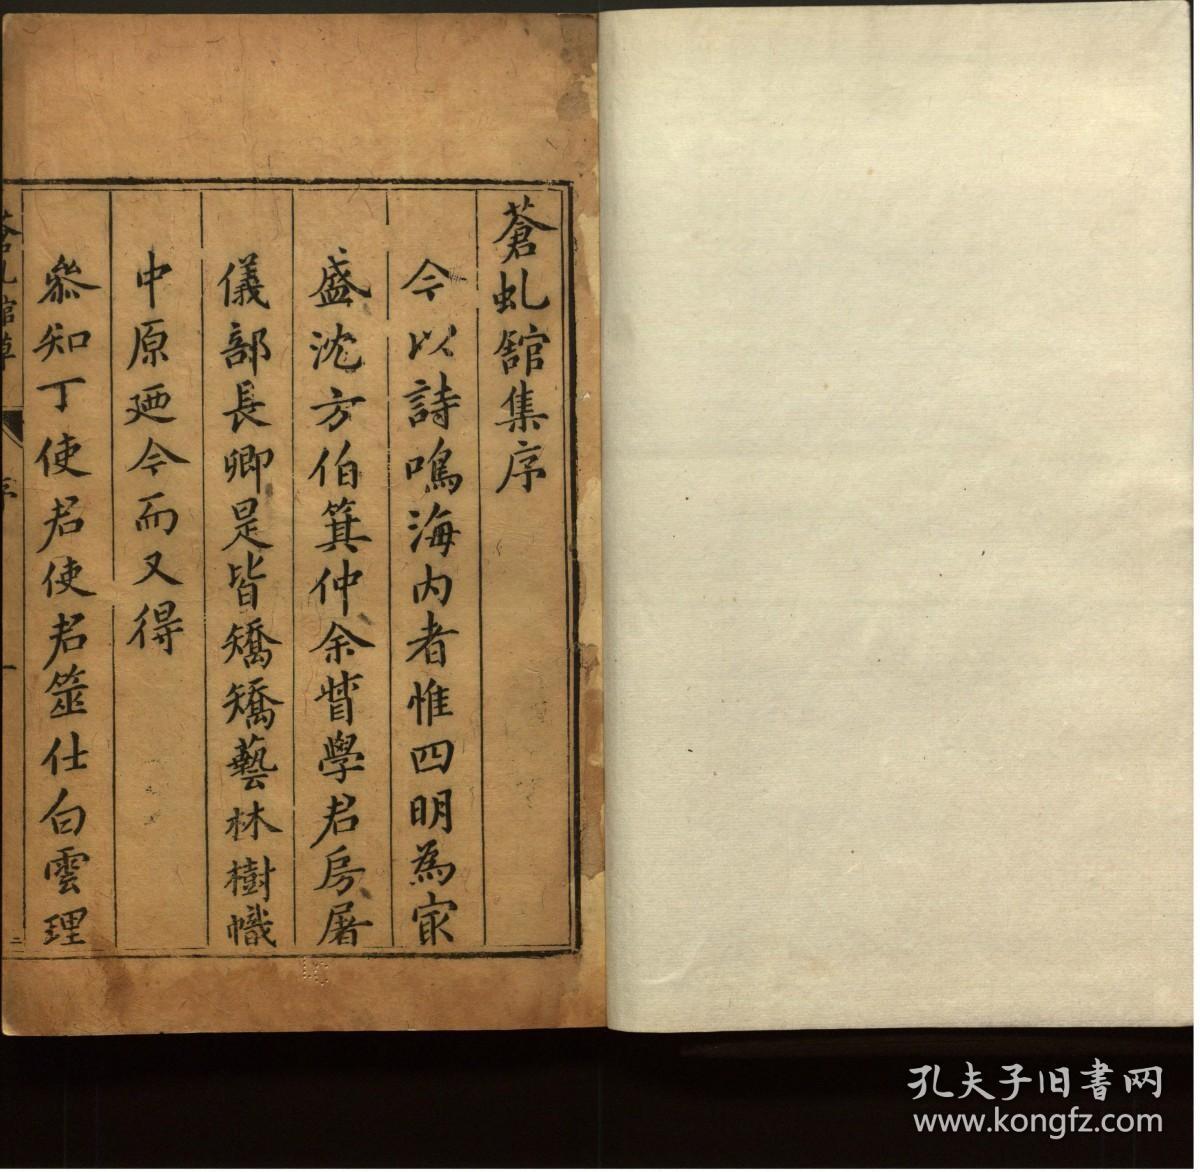 蒼虬舘集序
今以詩鳴海内者惟四明為㝡
盛沈方伯箕仲余督學君房屠
儀部長卿是皆矯矯藝林樹幟
中原廼今而又得
叅知丁使君使君筮仕白雲理
蒼虬舘草
序
一
孔夫子旧書网
www.kongfz.com